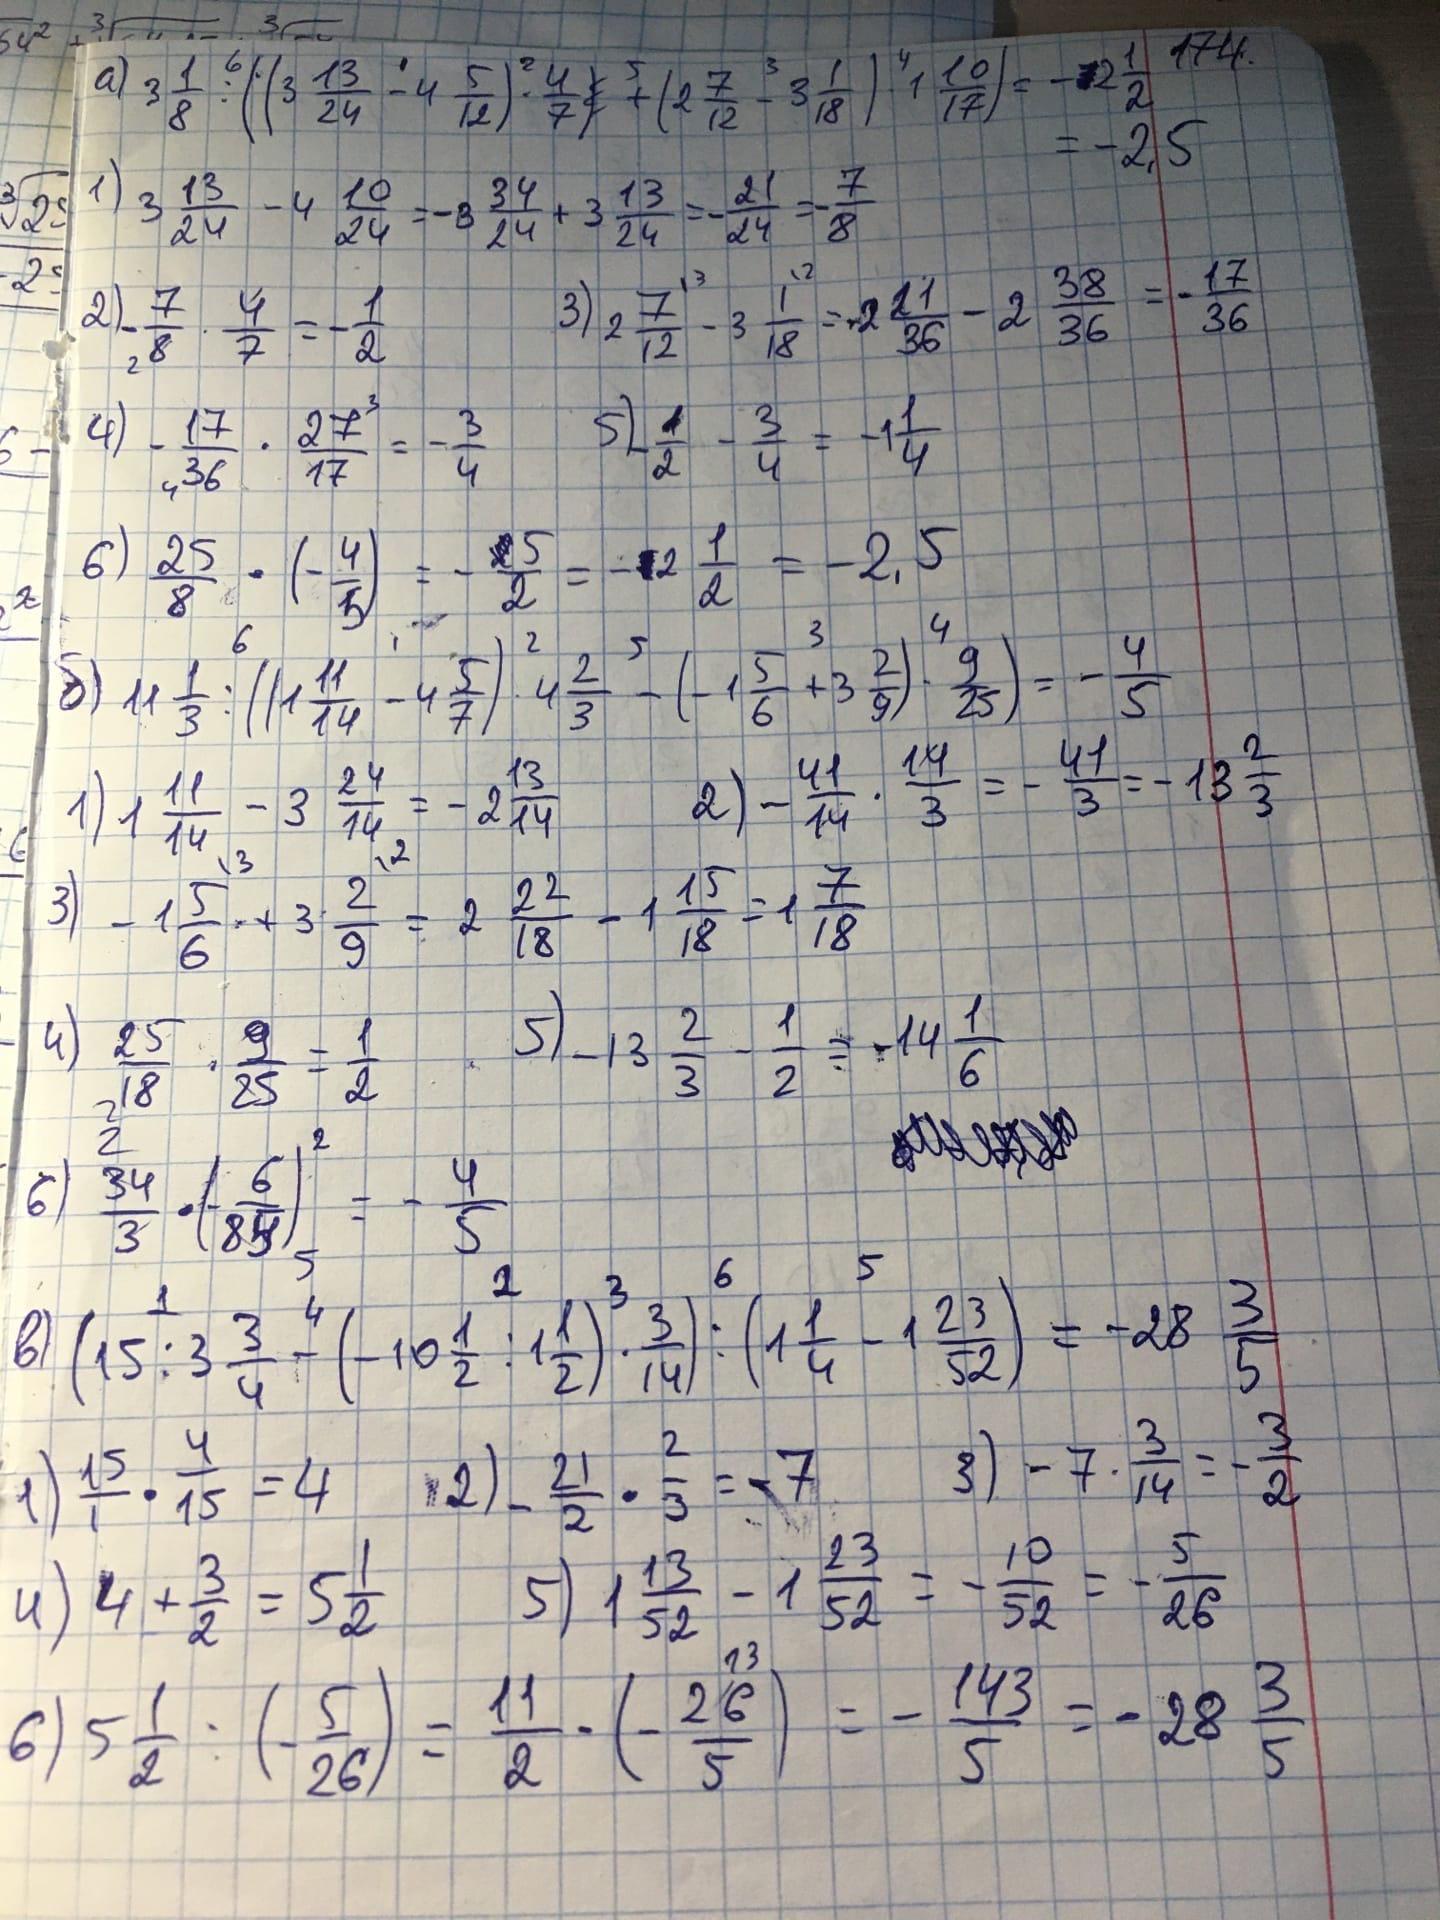 174.
а) 3 1/8 : ((3 13/24 - 4 5/12) · 4/7 + (2 7/12 - 3 1/18) · 1 10/17) = -2 1/2
= -2,5
1) 3 13/24 - 4 10/24 = -3 34/24 + 3 13/24 = -21/24 = -7/8
2) -7/8 · 4/7 = -1/2 3) 2 7/12 - 3 1/18 = 2 21/36 - 2 38/36 = -17/36
4) -17/36 · 27/17 = -3/4 5) -1/2 - 3/4 = -1 1/4
6) 25/8 · (-4/5) = -5/2 = -2 1/2 = -2,5
б) 11 1/3 : ((1 11/14 - 4 5/7) · 4 2/3 - (-1 5/6 + 3 2/9) · 9/25) = -4/5
1) 1 11/14 - 3 24/14 = -2 13/14 2) -41/14 · 14/3 = -41/3 = -13 2/3
3) -1 5/6 + 3 2/9 = 2 22/18 - 1 15/18 = 1 7/18
4) 25/18 · 9/25 = 1/2 5) -13 2/3 - 1/2 = -14 1/6
6) 34/3 · (-6/85) = -4/5
в) (15 : 3 3/4 - (-10 1/2 : 1 1/2) · 3/14) : (1 1/4 - 1 23/52) = -28 3/5
1) 15/1 · 4/15 = 4 2) -21/2 · 2/3 = -7 3) -7 · 3/14 = -3/2
4) 4 + 3/2 = 5 1/2 5) 1 13/52 - 1 23/52 = -10/52 = -5/26
6) 5 1/2 : (-5/26) = 11/2 · (-26/5) = -143/5 = -28 3/5